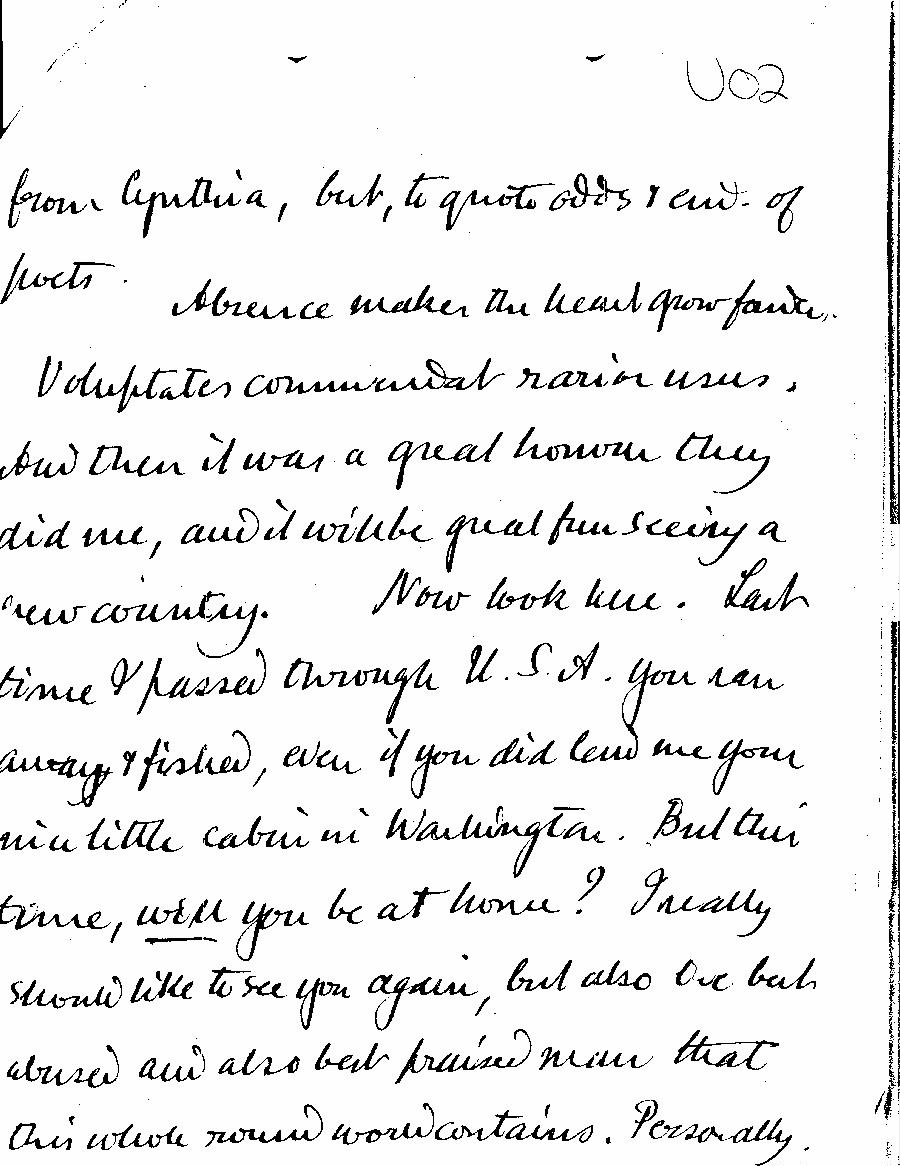 U02
from Cynthia, but, to quote odds & end. of
poets.
Absence makes the heart grow fonder.
Voluptates commendat rarior usus.
And then it was a great honour they
did me, and it will be great fun seeing a
new country. Now look here. Last
time I passed through U.S.A. you ran
away & fished, even if you did lend me your
nice little cabin in Washington. But this
time, will you be at home? I really
should like to see you again, but also the best
abused and also best praised man that
this whole round world contains. Personally